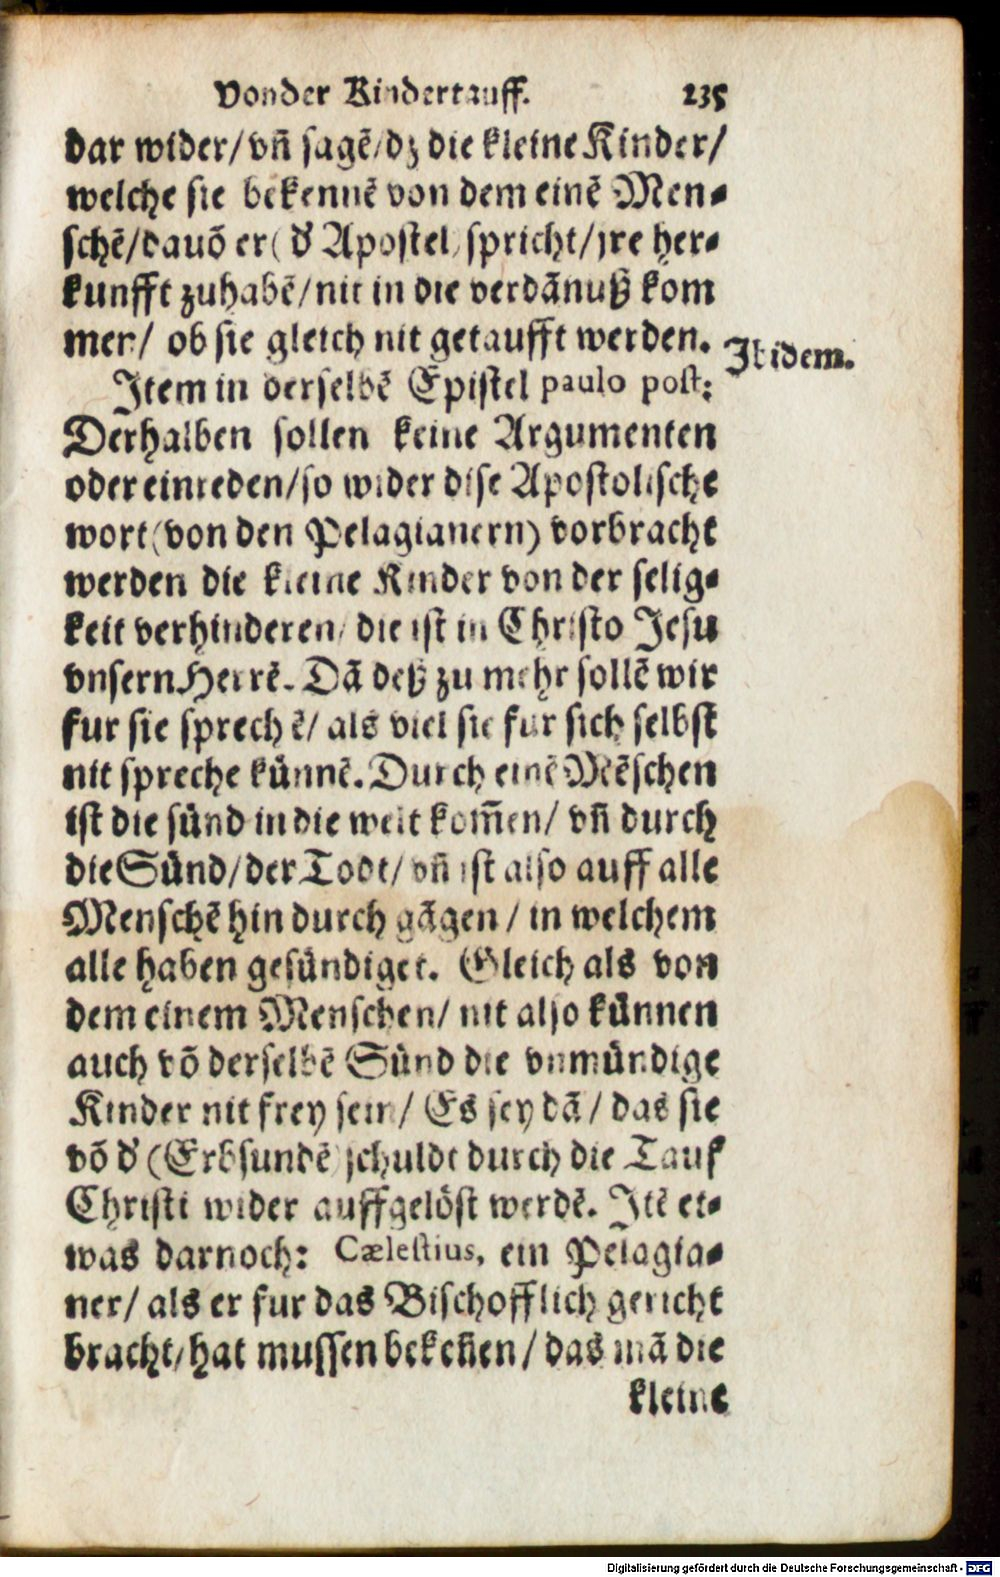 Von der Kindertauff. 235
dar wider/ vñ sagẽ/ dz die kleine Kinder/
welche sie bekennẽ von dem einẽ Men⸗
schẽ/ dauõ er( d' Apostel) spricht/ jre her⸗
kunfft zuhabẽ/ nit in die verdãnuß kom
men/ ob sie gleich nit getaufft werden.
Ibidem.
Item in derselbẽ Epistel paulo post:
Derhalben sollen keine Argumenten
oder einreden/ so wider dise Apostolische
wort (von den Pelagianern) vorbracht
werden die kleine Kinder von der selig⸗
keit verhinderen/ die ist in Christo Jesu
vnsern Herrẽ. Dã deß zu mehr sollẽ wir
fur sie sprechẽ/ als viel sie fur sich selbst
nit spreche künnẽ. Durch einẽ Mẽschen
ist die sünd in die welt kom̃en/ vñ durch
die Sünd/ der Todt/ vñ ist also auff alle
Menschẽ hin durch gãgen/ in welchem
alle haben gesündiget. Gleich als von
dem einem Menschen/ nit also künnen
auch võ derselbẽ Sünd die vnmündige
Kinder nit frey sein/ Es sey dã/ das sie
võ d' (Erbsundẽ) schuldt durch die Tauf
Christi wider auffgelöst werdẽ. Itẽ et⸗
was darnoch: Cælestius, ein Pelagia⸗
ner/ als er fur das Bischofflich gericht
bracht/ hat mussen bekeñen/ das mã die
kleine
Digitalisierung gefördert durch die Deutsche Forschungsgemeinschaft - DFG